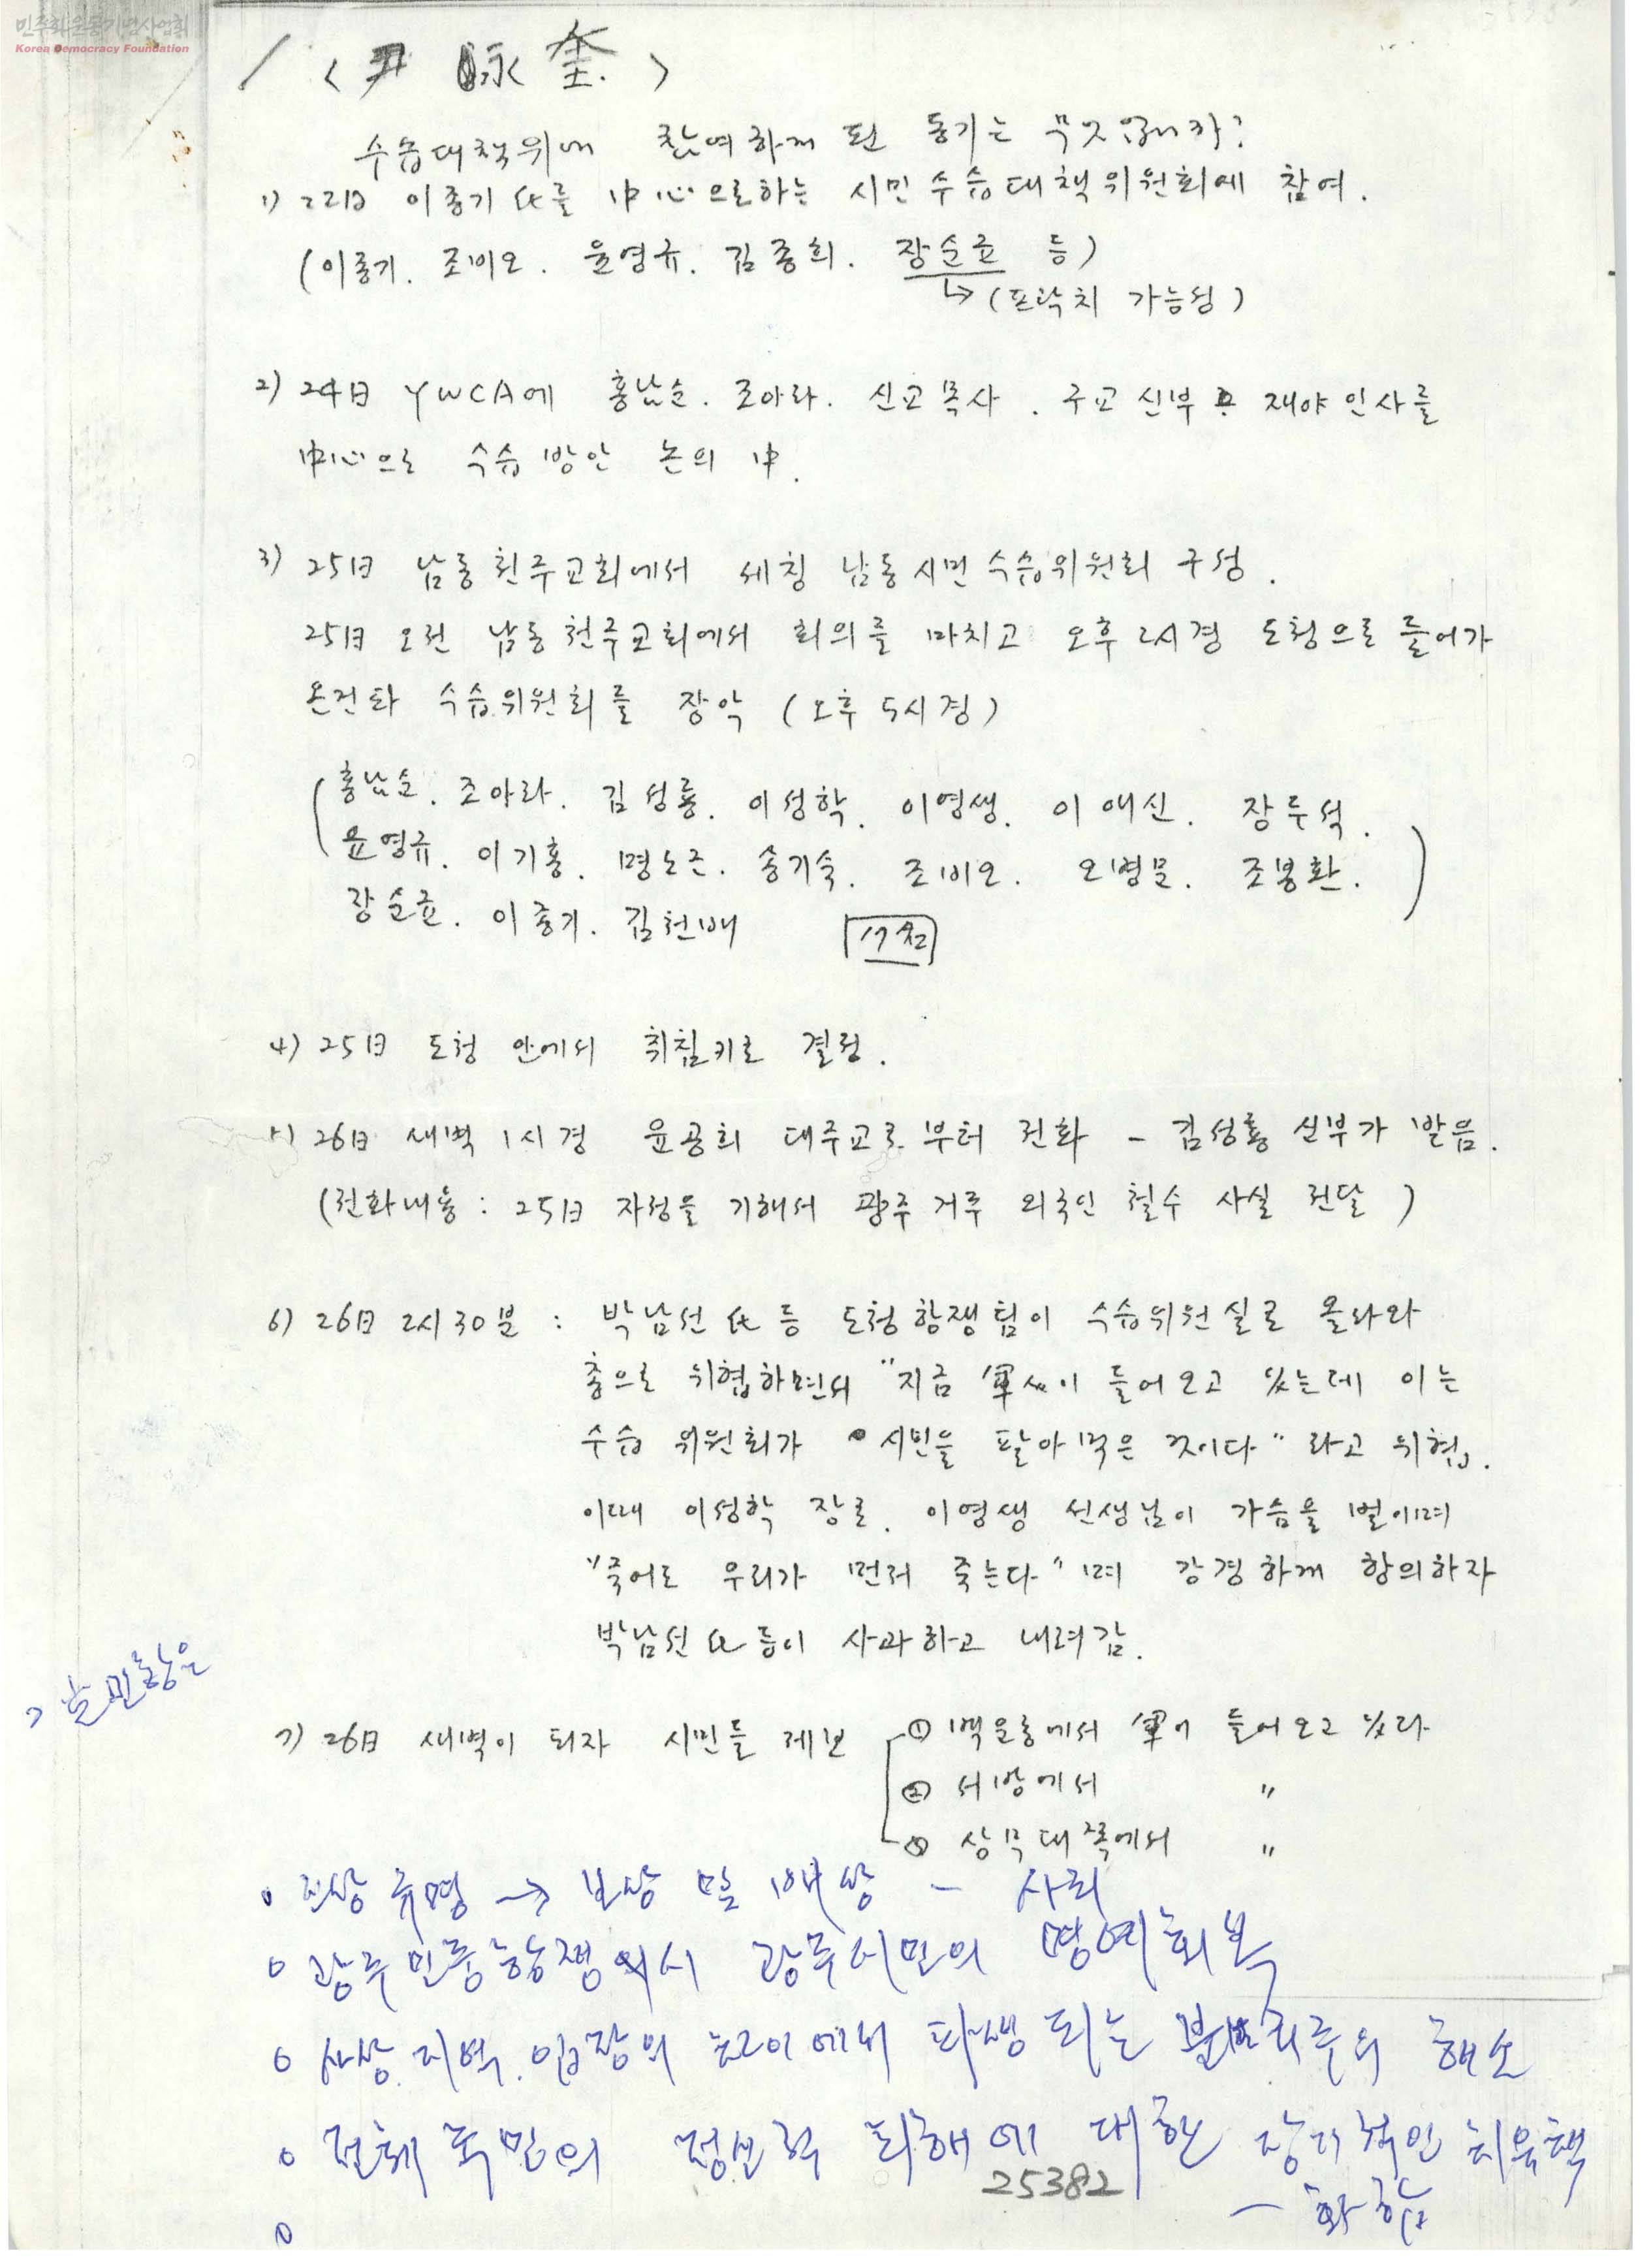 민주화운동기념사업회
Korea Democracy Foundation
/ <尹 詠奎.>
수습대책위에 참여하게 된 동기는 무엇입니까?
1) 22日 이종기 氏를 中心으로하는 시민수습대책위원회에 참여.
(이종기. 조비오. 윤영규. 김종희. 장순균 등)
↳ (프락치 가능성)
2) 24日 YWCA에 홍남순. 조아라. 신교목사. 구교신부 및 재야인사를
中心으로 수습방안 논의 中.
3) 25日 남동천주교회에서 세칭 남동시민수습위원회 구성.
25日 오전 남동천주교회에서 회의를 마치고 오후 2시경 도청으로 들어가
온건파 수습위원회를 장악 (오후 5시경)
(홍남순. 조아라. 김성룡. 이성학. 이영생. 이애신. 장두석.
윤영규. 이기홍. 명노근. 송기숙. 조비오. 오병문. 조봉환.
장순균. 이종기. 김천배 17名)
4) 25日 도청 안에서 취침키로 결정.
5) 26日 새벽 1시경 윤공희 대주교로부터 전화 - 김성룡 신부가 받음.
(전화내용 : 25日 자정을 기해서 광주 거류 외국인 철수 사실 전달)
6) 26日 2시 30분 : 박남선 氏 등 도청항쟁팀이 수습위원실로 올라와
총으로 위협하면서 "지금 軍人이 들어오고 있는데 이는
수습위원회가 시민을 팔아먹은 것이다" 라고 위협.
이때 이성학 장로. 이영생 선생님이 가슴을 벌이며
"죽어도 우리가 먼저 죽는다" 며 강경하게 항의하자
박남선 氏 등이 사과하고 내려감.
7) 26日 새벽이 되자 시민들 제보 ① 백운동에서 軍이 들어오고 있다
② 서방에서 "
③ 상무대쪽에서 "
o 진상규명 → 보상 및 배상 - 사죄
o 광주민중항쟁에서 광주시민의 명예회복
o 사상. 지역. 입장의 차이에서 파생되는 해소
o 전체 국민의 정신적 피해에 대한 장기적인 치유책
- 화합
o
25382